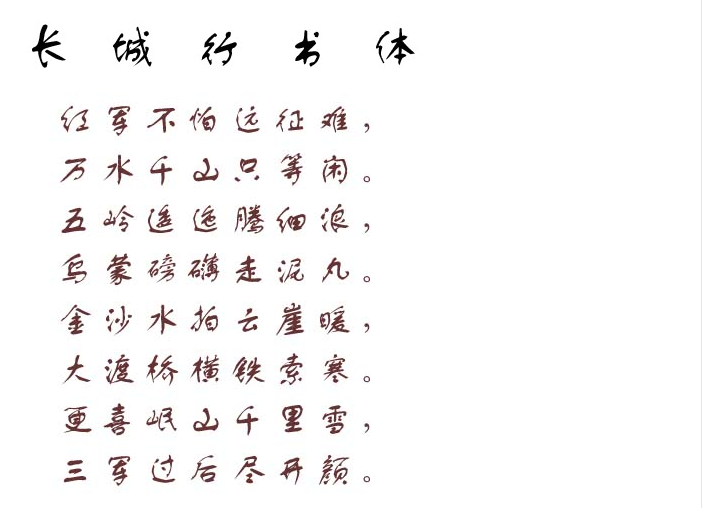 长城行书体
红军不怕远征难，
万水千山只等闲。
五岭逶迤腾细浪，
乌蒙磅礴走泥丸。
金沙水拍云崖暖，
大渡桥横铁索寒。
更喜岷山千里雪，
三军过后尽开颜。